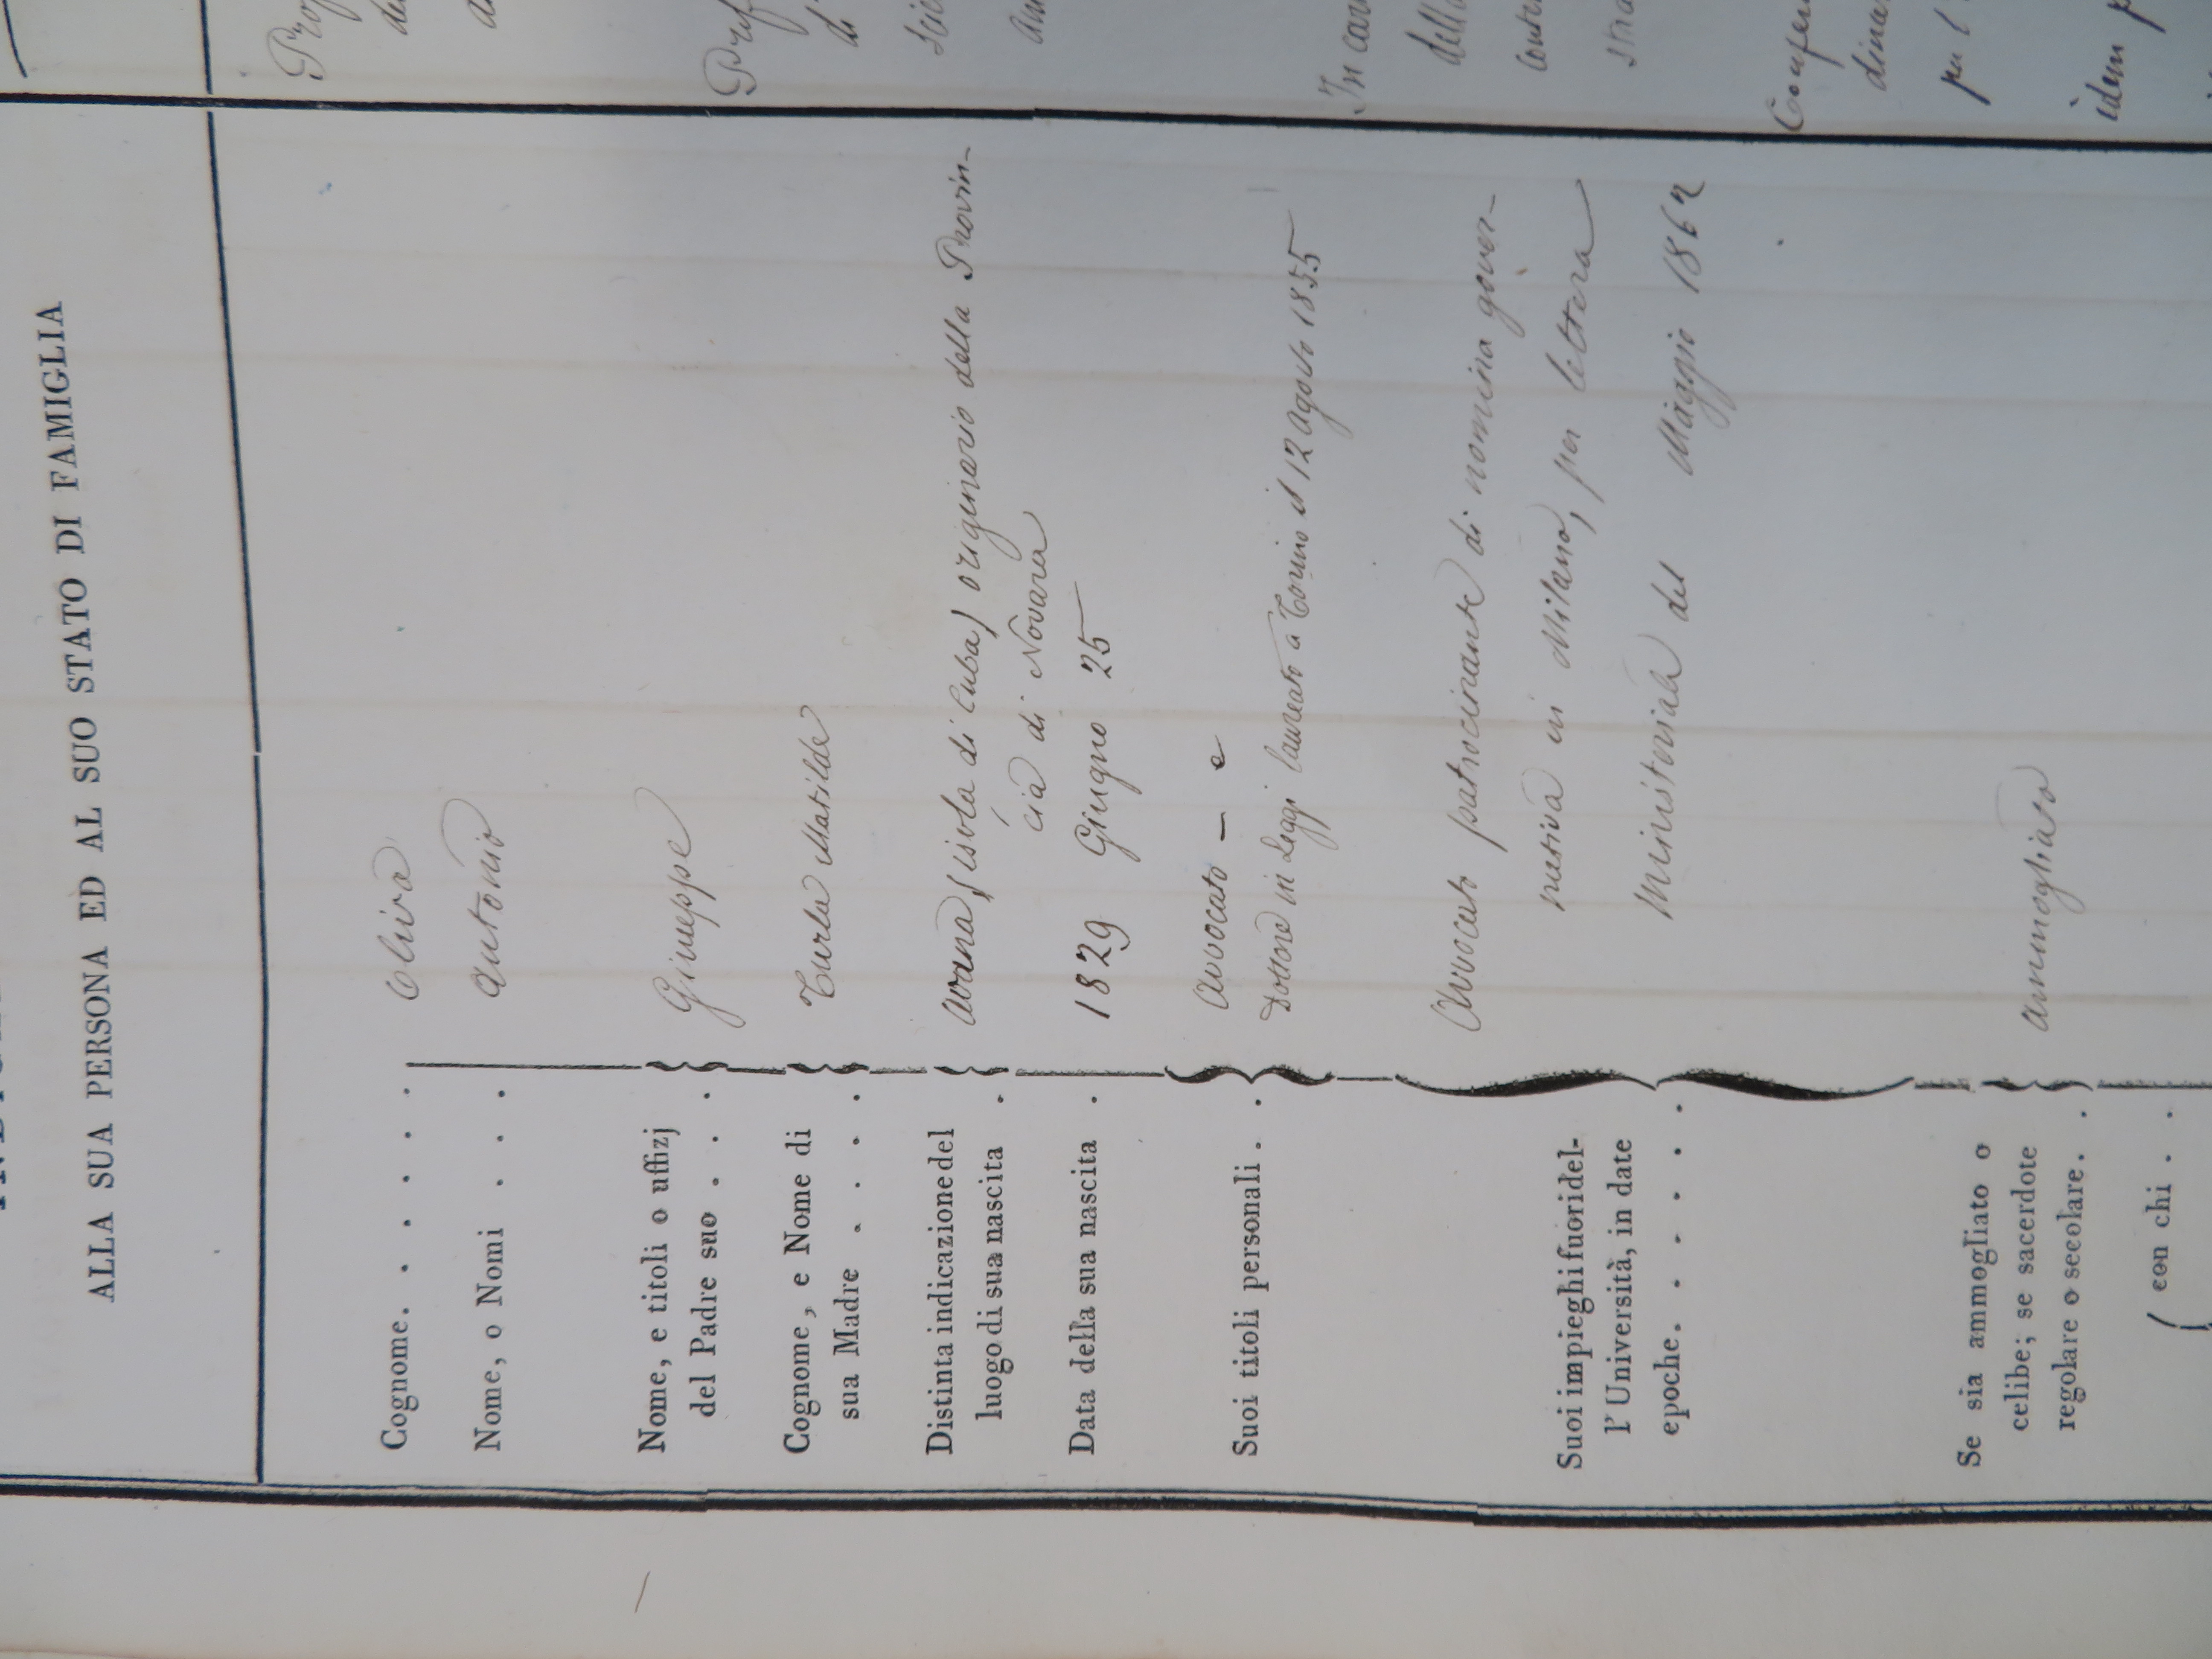 ALLA SUA PERSONA ED AL SUO STATO DI FAMIGLIA
Cognome. . . . . . Oliva
Nome, o Nomi . . . Antonio
Nome, e titoli o uffizj
del Padre suo . . . Giuseppe
Cognome, e Nome di
sua Madre . . . . Turla Matilde
Distinta indicazione del
luogo di sua nascita .
Avana (isola di Cuba) originario della Provin-
cia di Novara
Data della sua nascita . 1829 Giugno 25
Suoi titoli personali . .
Avvocato — e
Dottore in Leggi laureato a Torino il 12 Agosto 1855
Suoi impieghi fuori del-
l'Università, in date
epoche. . . . . .
Avvocato patrocinante di nomina gover-
nativa in Milano, per lettera
Ministeriale del Maggio 1862
Se sia ammogliato o
celibe; se sacerdote
regolare o secolare. .
Ammogliato
con chi . .
In
della
idem